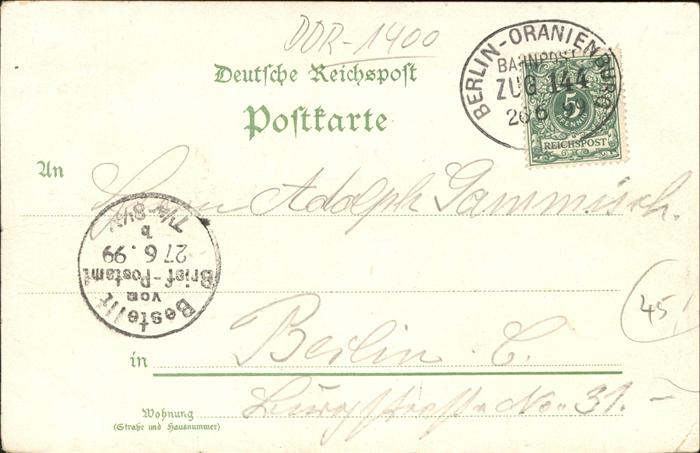 DDR-1400
BERLIN-ORANIENBURG
BAHNPOST
ZUG 144
26 6 99
5
PFENNIG
REICHSPOST
Deutsche Reichspost
Postkarte
An
Herrn Adolph Gammisch.
Bestellt
vom
Brief-Postamt
27 6. 99
b
7¼-8½V
45
in Berlin C.
Burgstraße No. 31.-
Wohnung
(Straße und Hausnummer)